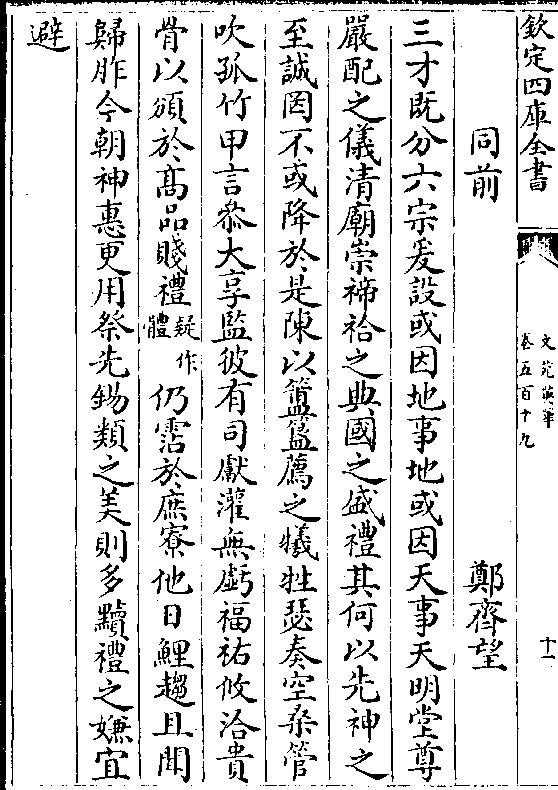 欽定四庫全書
文苑英華
卷五百十九
十一
同前
鄭齊望
三才既分六宗爰設或因地事地或因天事天明堂尊
嚴配之儀清廟崇禘祫之典國之盛禮其何以先神之
至誠罔不或降於是陳以簠簋薦之犧牲瑟奏空桑管
吹孤竹甲言叅大享監彼有司獻灌無虧福祐攸洽貴
骨以頒於高品賤禮疑作體仍霑於庶寮他日鯉趨且聞
歸胙今朝神惠更用祭先錫類之美則多黷禮之嫌宜
避